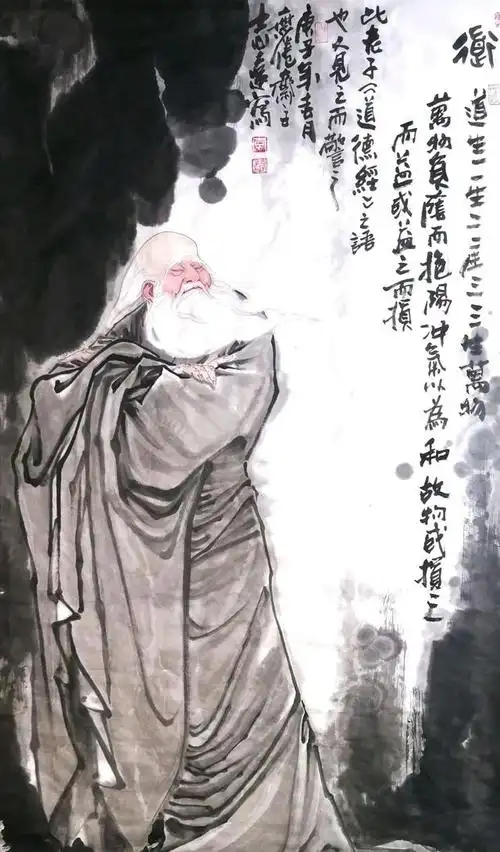 道生一生二二生三三生萬物
萬物負陰而抱陽冲氣以為和故物或損之
而益或益之而損
此老子《道德經》之語
也人見之而警之
庚子年吉月
無倦齋主
志遠寫